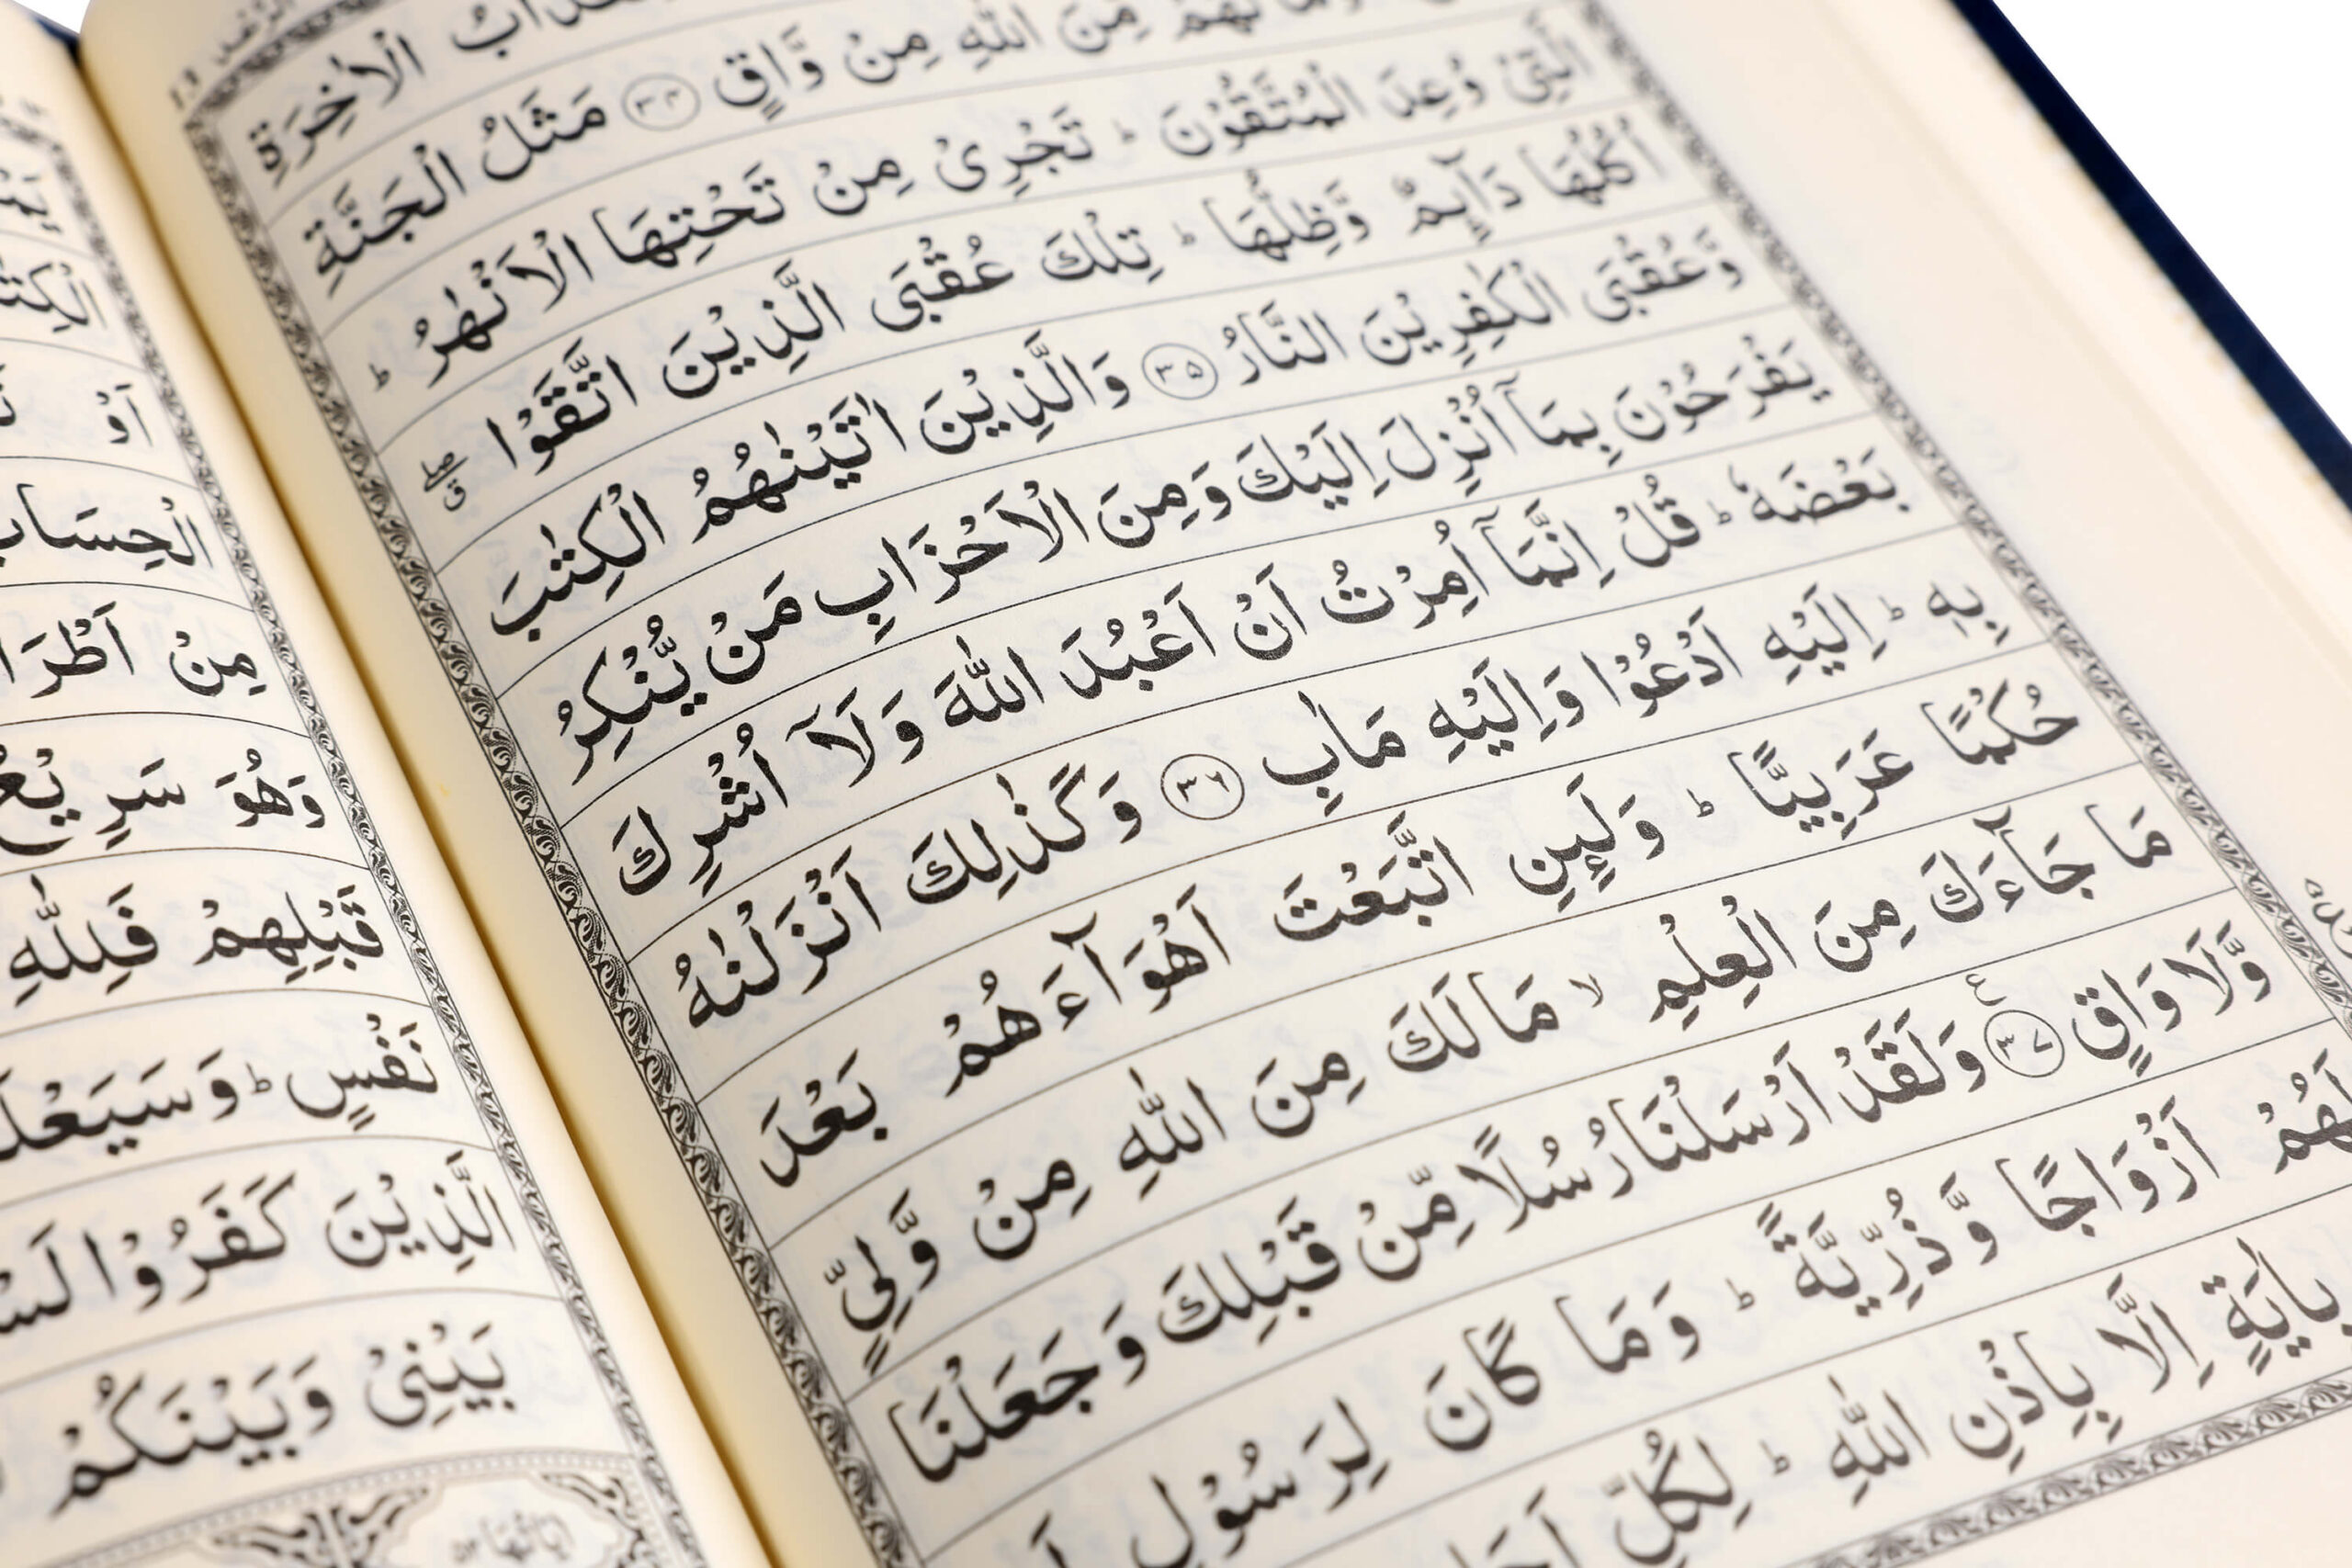 الْاٰخِرَةِ
لَهُمْ مِّنَ اللّٰهِ مِنْ وَّاقٍ ﴿۳۴﴾ مَثَلُ الْجَنَّةِ
الَّتِىْ وُعِدَ الْمُتَّقُوْنَ ؕ تَجْرِىْ مِنْ تَحْتِهَا الْاَنْهٰرُ ؕ
اُكُلُهَا دَآىِٕمٌ وَّظِلُّهَا ؕ تِلْكَ عُقْبَى الَّذِيْنَ اتَّقَوْا ۖۗ
وَّعُقْبَى الْكٰفِرِيْنَ النَّارُ ﴿۳۵﴾ وَالَّذِيْنَ اٰتَيْنٰهُمُ الْكِتٰبَ
يَفْرَحُوْنَ بِمَآ اُنْزِلَ اِلَيْكَ وَمِنَ الْاَحْزَابِ مَنْ يُّنْكِرُ
بَعْضَهٗ ؕ قُلْ اِنَّمَآ اُمِرْتُ اَنْ اَعْبُدَ اللّٰهَ وَلَآ اُشْرِكَ
بِهٖ ؕ اِلَيْهِ اَدْعُوْا وَاِلَيْهِ مَاٰبِ ﴿۳۶﴾ وَكَذٰلِكَ اَنْزَلْنٰهُ
حُكْمًا عَرَبِيًّا ؕ وَلَىِٕنِ اتَّبَعْتَ اَهْوَآءَهُمْ بَعْدَ
مَا جَآءَكَ مِنَ الْعِلْمِ ۙ مَا لَكَ مِنَ اللّٰهِ مِنْ وَّلِىٍّ
وَّلَا وَاقٍ ﴿۳۷﴾ وَلَقَدْ اَرْسَلْنَا رُسُلًا مِّنْ قَبْلِكَ وَجَعَلْنَا
لَهُمْ اَزْوَاجًا وَّذُرِّيَّةً ؕ وَمَا كَانَ لِرَسُوْلٍ
بِاٰيَةٍ اِلَّا بِاِذْنِ اللّٰهِ ؕ لِكُلِّ
اَوْ
مِنْ
وَهُوَ سَرِيْعُ
قَبْلِهِمْ فَلِلّٰهِ
نَفْسٍ ؕ وَسَيَعْلَ
الَّذِيْنَ كَفَرُوْا لَسْ
بَيْنِىْ وَبَيْنَكُمْ